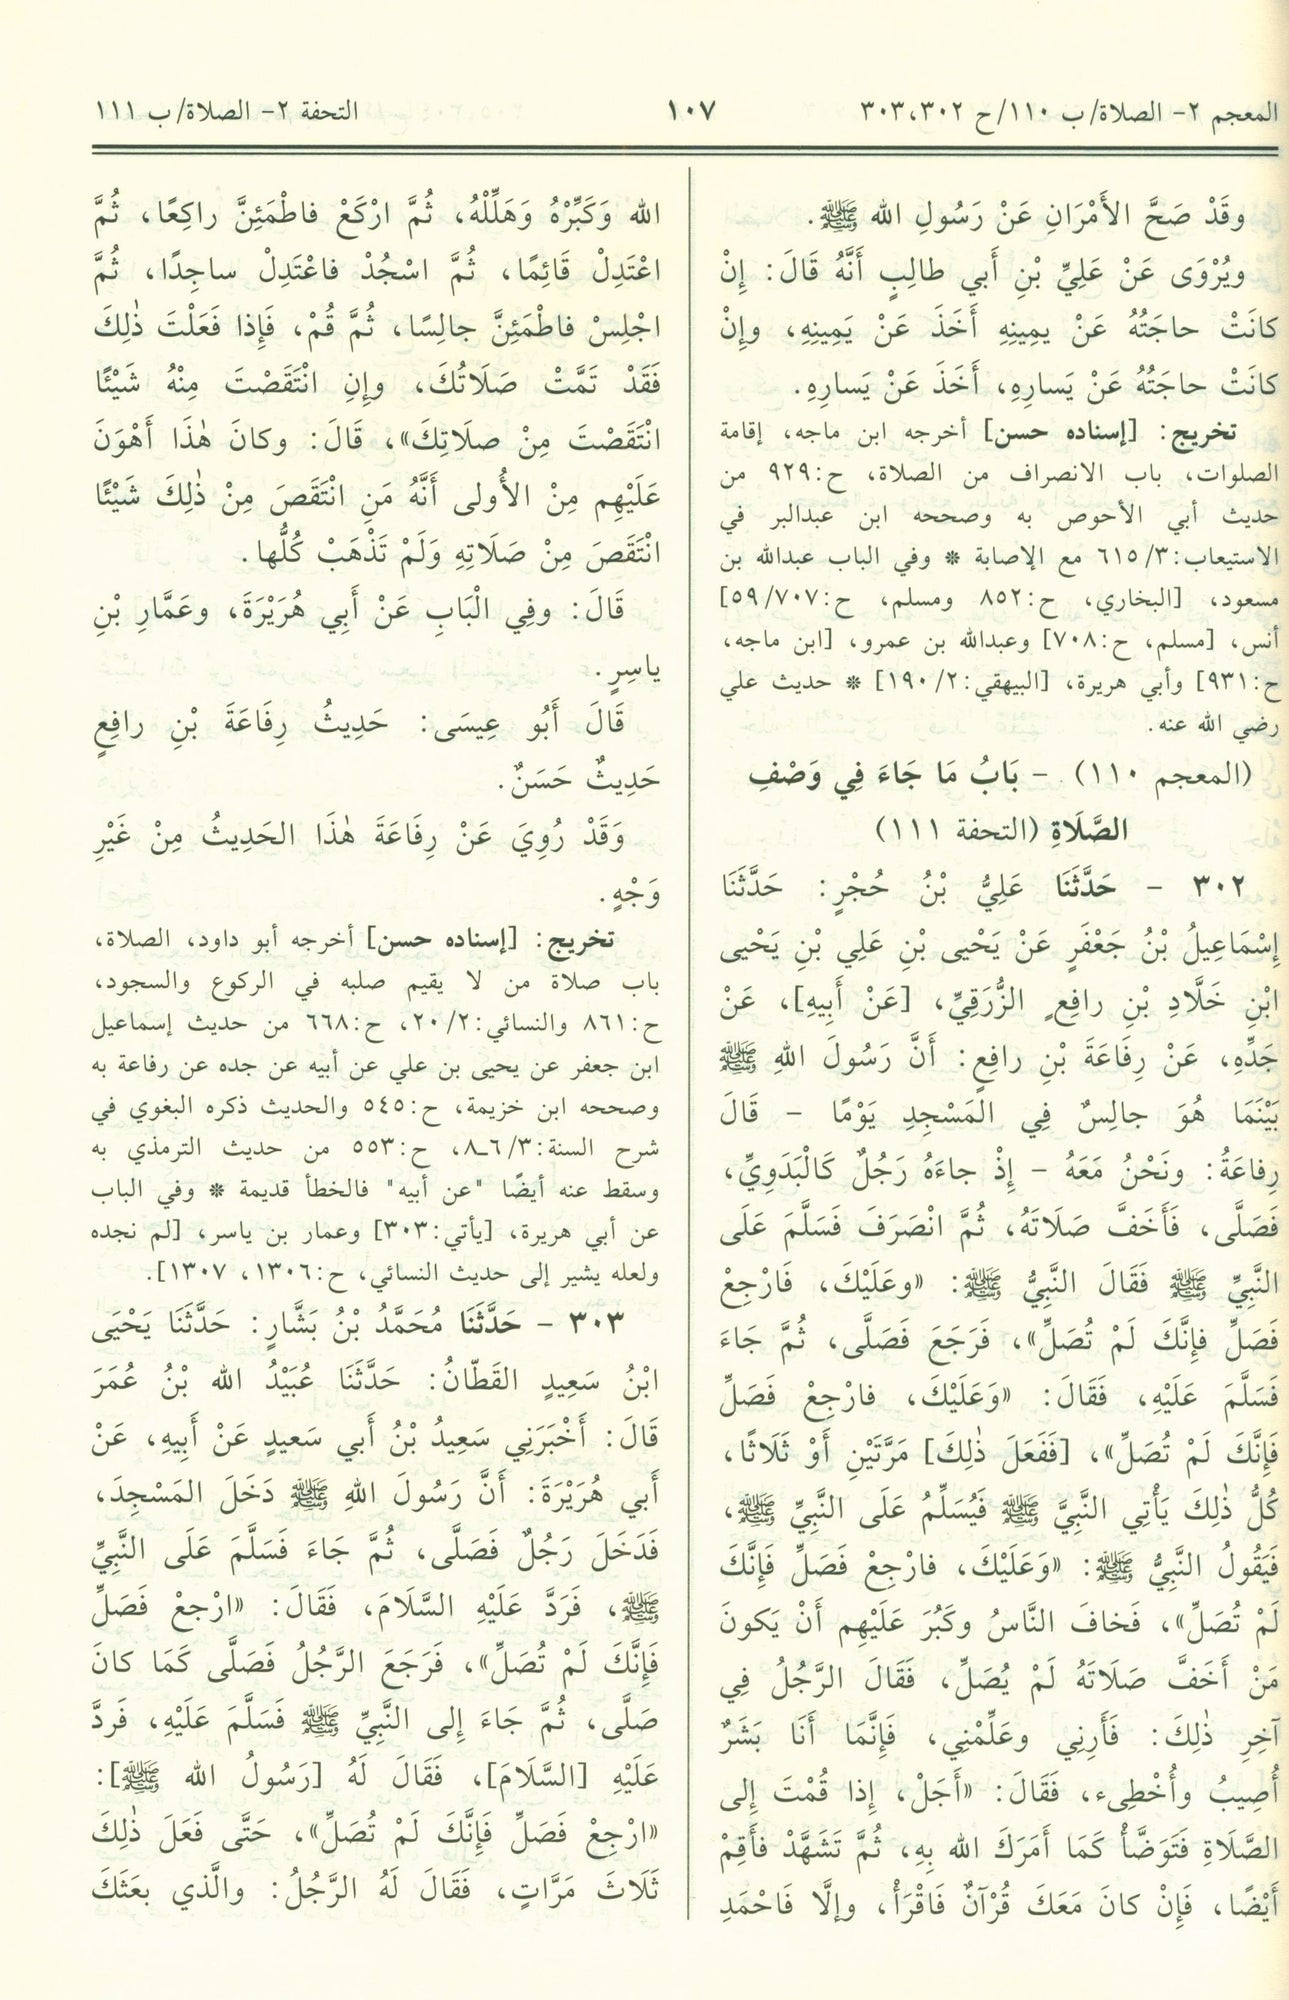 المعجم ٢- الصلاة/ ب ١١٠/ ح ٣٠٢، ٣٠٣
١٠٧
التحفة ٢- الصلاة/ ب ١١١
وقَدْ صَحَّ الأَمْرَانِ عَنْ رَسُولِ الله ﷺ.
ويُرْوَى عَنْ عَلِيِّ بْنِ أَبي طالِبٍ أَنَّهُ قَالَ: إِنْ
كانَتْ حاجَتُهُ عَنْ يمِينِهِ أَخَذَ عَنْ يَمِينِهِ، وإِنْ
كانَتْ حاجَتُهُ عَنْ يَسارِهِ، أَخَذَ عَنْ يَسارِهِ.
تخريج: [إسناده حسن] أخرجه ابن ماجه، إقامة
الصلوات، باب الانصراف من الصلاة، ح:٩٢٩ من
حديث أبي الأحوص به وصححه ابن عبدالبر في
الاستيعاب:٣/ ٦١٥ مع الإصابة * وفي الباب عبدالله بن
مسعود، [البخاري، ح:٨٥٢ ومسلم، ح:٧٠٧/ ٥٩]
أنس، [مسلم، ح:٧٠٨] وعبدالله بن عمرو، [ابن ماجه،
ح:٩٣١] وأبي هريرة، [البيهقي:٢/ ١٩٠] * حديث علي
رضي الله عنه.
(المعجم ١١٠) - بَابُ مَا جَاءَ فِي وَصْفِ
الصَّلَاةِ (التحفة ١١١)
٣٠٢ - حَدَّثَنَا عَلِيُّ بْنُ حُجْرٍ: حَدَّثَنَا
إِسْمَاعِيلُ بْنُ جَعْفَرٍ عَنْ يَحْيى بْنِ عَلِي بْنِ يَحْيى
ابْنِ خَلَّادِ بْنِ رافِعٍ الزُّرَقِيِّ، [عَنْ أَبِيهِ]، عَنْ
جَدِّهِ، عَنْ رِفَاعَةَ بْنِ رافِعٍ: أَنَّ رَسُولَ اللهِ ﷺ
بَيْنَمَا هُوَ جالِسٌ فِي المَسْجِدِ يَوْمًا - قَالَ
رِفاعَةُ: ونَحْنُ مَعَهُ - إِذْ جاءَهُ رَجُلٌ كَالْبَدَوِيِّ،
فَصَلَّى، فَأَخَفَّ صَلَاتَهُ، ثُمَّ انْصَرَفَ فَسَلَّمَ عَلَى
النَّبِيِّ ﷺ فَقَالَ النَّبِيُّ ﷺ: «وعَلَيْكَ، فَارْجِعْ
فَصَلِّ فإِنَّكَ لَمْ تُصَلِّ»، فَرَجَعَ فَصَلَّى، ثُمَّ جَاءَ
فَسَلَّمَ عَلَيْهِ، فَقَالَ: «وَعَلَيْكَ، فارْجِعْ فَصَلِّ
فَإِنَّكَ لَمْ تُصَلِّ»، [فَفَعَلَ ذٰلِكَ] مَرَّتَيْنِ أَوْ ثَلَاثًا،
كُلُّ ذٰلِكَ يَأْتِي النَّبِيَّ ﷺ فَيُسَلِّمُ عَلَى النَّبِيِّ ﷺ،
فَيَقُولُ النَّبِيُّ ﷺ: «وَعَلَيْكَ، فارْجِعْ فَصَلِّ فَإِنَّكَ
لَمْ تُصَلِّ»، فَخافَ النَّاسُ وكَبُرَ عَلَيْهِم أَنْ يَكونَ
مَنْ أَخَفَّ صَلَاتَهُ لَمْ يُصَلِّ، فَقَالَ الرَّجُلُ فِي
آخِرِ ذٰلِكَ: فَأَرِنِي وعَلِّمْنِي، فَإِنَّمَا أَنَا بَشَرٌ
أُصِيبُ وأُخْطِىء، فَقَالَ: «أَجَلْ، إِذا قُمْتَ إِلى
الصَّلَاةِ فَتَوَضَّأْ كَمَا أَمَرَكَ الله بِهِ، ثُمَّ تَشَهَّدْ فأَقِمْ
أَيْضًا، فَإِنْ كانَ مَعَكَ قُرْآنٌ فَاقْرَأْ، وإِلَّا فَاحْمَدِ
الله وَكَبِّرْهُ وَهَلِّلْهُ، ثُمَّ ارْكَعْ فاطْمَئِنَّ راكِعًا، ثُمَّ
اعْتَدِلْ قَائِمًا، ثُمَّ اسْجُدْ فاعْتَدِلْ ساجِدًا، ثُمَّ
اجْلِسْ فاطْمَئِنَّ جالِسًا، ثُمَّ قُمْ، فَإِذا فَعَلْتَ ذٰلِكَ
فَقَدْ تَمَّتْ صَلَاتُكَ، وإِنِ انْتَقَصْتَ مِنْهُ شَيْئًا
انْتَقَصْتَ مِنْ صلَاتِكَ»، قَالَ: وكانَ هٰذَا أَهْوَنَ
عَلَيْهِم مِنْ الأُولى أَنَّهُ مَنِ انْتَقَصَ مِنْ ذٰلِكَ شَيْئًا
انْتَقَصَ مِنْ صَلَاتِهِ وَلَمْ تَذْهَبْ كُلُّها.
قَالَ: وفِي الْبَابِ عَنْ أَبِي هُرَيْرَةَ، وعَمَّارِ بْنِ
ياسِرٍ.
قَالَ أَبُو عِيسَى: حَدِيثُ رِفَاعَةَ بْنِ رافِعٍ
حَدِيثٌ حَسَنٌ.
وَقَدْ رُوِيَ عَنْ رِفَاعَةَ هٰذَا الحَدِيثُ مِنْ غَيْرِ
وَجْهٍ.
تخريج: [إسناده حسن] أخرجه أبو داود، الصلاة،
باب صلاة من لا يقيم صلبه في الركوع والسجود،
ح:٨٦١ والنسائي:٢/ ٢٠، ح:٦٦٨ من حديث إسماعيل
ابن جعفر عن يحيى بن علي عن أبيه عن جده عن رفاعة به
وصححه ابن خزيمة، ح:٥٤٥ والحديث ذكره البغوي في
شرح السنة:٣/ ٦ـ٨، ح:٥٥٣ من حديث الترمذي به
وسقط عنه أيضًا "عن أبيه" فالخطأ قديمة * وفي الباب
عن أبي هريرة، [يأتي:٣٠٣] وعمار بن ياسر، [لم نجده
ولعله يشير إلى حديث النسائي، ح:١٣٠٦، ١٣٠٧].
٣٠٣ - حَدَّثَنَا مُحَمَّدُ بْنُ بَشَّارٍ: حَدَّثَنَا يَحْيَى
ابْنُ سَعِيدٍ القَطّانُ: حَدَّثَنَا عُبَيْدُ الله بْنُ عُمَرَ
قَالَ: أَخْبَرَنِي سَعِيدُ بْنُ أَبي سَعيدٍ عَنْ أَبِيهِ، عَنْ
أَبي هُرَيْرَةَ: أَنَّ رَسُولَ اللهِ ﷺ دَخَلَ المَسْجِدَ،
فَدَخَلَ رَجُلٌ فَصَلَّى، ثُمَّ جَاءَ فَسَلَّمَ عَلَى النَّبِيِّ
ﷺ، فَرَدَّ عَلَيْهِ السَّلَامَ، فَقَالَ: «ارْجعْ فَصَلِّ
فَإِنَّكَ لَمْ تُصَلِّ»، فَرَجَعَ الرَّجُلُ فَصَلَّى كَمَا كانَ
صَلَّى، ثُمَّ جَاءَ إِلى النَّبِيِّ ﷺ فَسَلَّمَ عَلَيْهِ، فَردَّ
عَلَيْهِ [السَّلَامَ]، فَقَالَ لَهُ [رَسُولُ الله ﷺ]:
«ارْجِعْ فَصَلِّ فَإِنَّكَ لَمْ تُصَلِّ»، حَتَّى فَعَلَ ذٰلِكَ
ثَلَاثَ مَرَّاتٍ، فَقَالَ لَهُ الرَّجُلُ: والَّذي بعَثَكَ